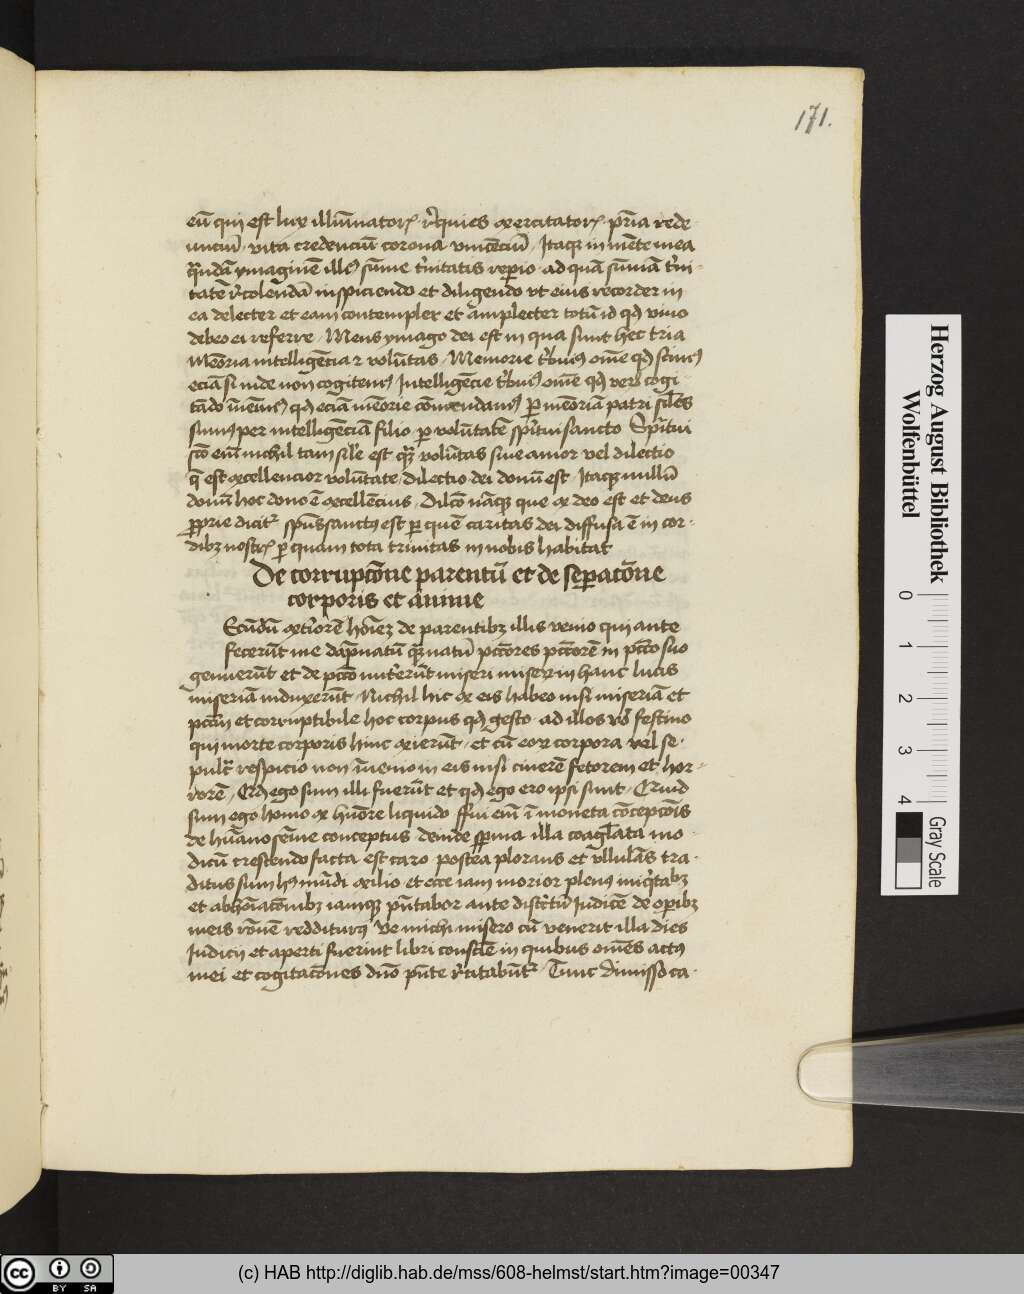 171.
eū qui est lux illūinatorꝝ rͥquies exercitatorꝝ pͥria rede
untiū vita credenciū corona vincēciū Itaqꝫ in mēte mea
qͣndā ymaginē illiꝰ sūme tͥnitatis reperio ad quā sūmā tͥni
tatē rͥcolendā inspiciendo et diligendo vt eius recorder in
ea delecter et eam contempler et amplecter totū id qd̄ vivo
debeo ei referre Mens ymago dei est in qua sunt hec tria
Memoria intelligēcia ⁊ volūtas Memorie tͥbuimꝰ om̄e qd̄ scimꝰ
eciā si inde non cogitemꝰ Intelligēcie tͥbuimꝰ om̄e qd̄ verū cogi
tādo īuenimꝰ qd̄ eciā memorie cōmendamꝰ Per memoriā patri siles
sumꝰ per intelligēciā filio per volūtatē spiritui sancto Spiritui
sc̄o eni nichil tam sile est qͣꝫ volūtas siue amor vel dilectio
q̄ est excellencior volūtate dilectio dei donū est Itaqꝫ nullū
donū hoc dono ē excellēcius Dilcō nāqꝫ que ex deo est et deus
pprie dicitͬ spūssanctꝰ est per quē caritas dei diffusa ē in cor
dibꝫ nostrꝭ per quam tota trinitas in nobis habitat
De corrupcōne parentū et de sepacōne
corporis et anime
Scd̄m exterͥorē hoīez de parentibꝫ illis venio qui ante
fecerūt me dāpnatū qͣꝫ natū pctōres pctōrē in pctō suo
genuerūt et de pctō nutͥerūt miseri miserum in hanc lucis
miseriā induxerūt Nichil hic ex eis habeo nisi miseriā et
pctm̄ et corruptibile hoc corpus qd̄ gesto ad illos vō festino
qui morte corporis hinc exierūt et cū eoꝝ corpora vel se
pulcͣ respicio non īuenio in eis nisi cinerē fetorem et hor
rorē Qd̄ ego sum illi fuerūt et qd̄ ego ero ipsi sunt Quid
sum ego homo ex humore liquido ffui eni ī moneta cōcepcōis
de hūano semine conceptus deinde spuma illa coagulata mo
dicū crescendo facta est caro postea plorans et vllulās tra
ditus sum hꝰ mūdi exilio et ecce iam morior plenꝰ iniqͥtatibꝫ
et abhoīacōnibꝫ iamqꝫ pn̄tabor ante districtū Iudicē de opibꝫ
meis rōnē redditurꝰ Ve michi misero cū venerit illa dies
Iudicii et aperti fuerint libri consciē in quibus om̄es actꝰ
mei et cogitacōnes dn̄o pn̄te rͥcitabūtͬ Tunc dimisso ca
Herzog August Bibliothek
Wolfenbüttel
0 1 2 3 4
Gray Scale
BY SA
(c) HAB http://diglib.hab.de/mss/608-helmst/start.htm?image=00347